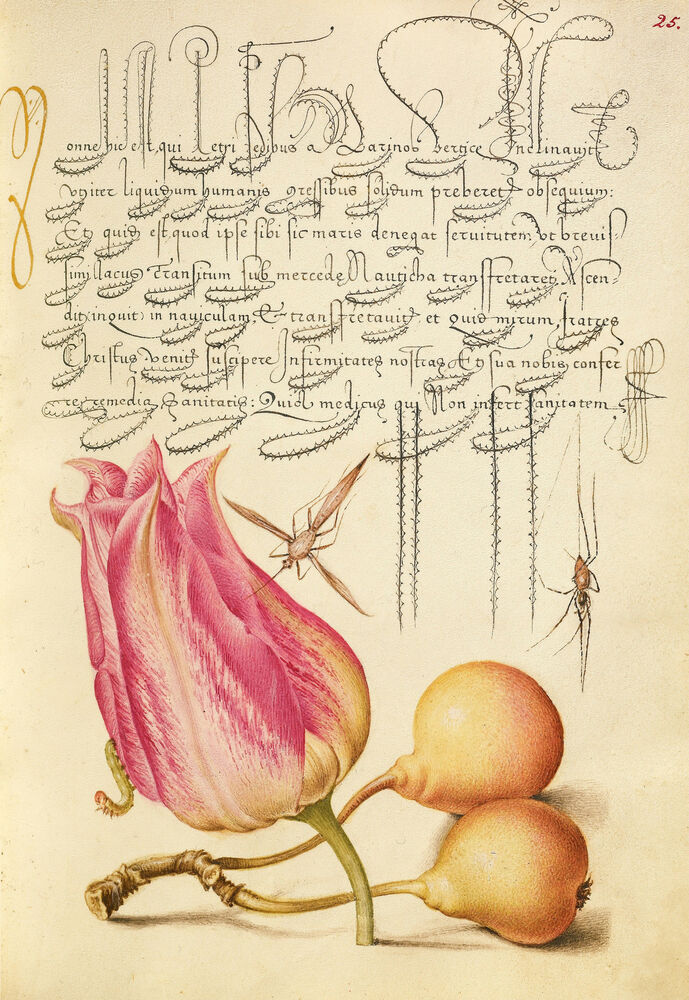 25.
Nonne hic est, qui Petri pedibus a Marinos vertice Inclinavit,
Ut iter liquidum humanis gressibus solidum preberet obsequium:
Et quid est, quod ipse sibi sic maris denegat servitutem, Ut brevis-
simi lacus Transitum sub mercede Nauticha transfretaret, Ascen-
dit (inquit) in naviculam, Et transfretavit, et Quid mirum, fratres
Christus venit suscipere Infirmitates nostras, Et sua nobis confer
re remedia, Sanitatis: Quia medicus qui Non infert sanitatem